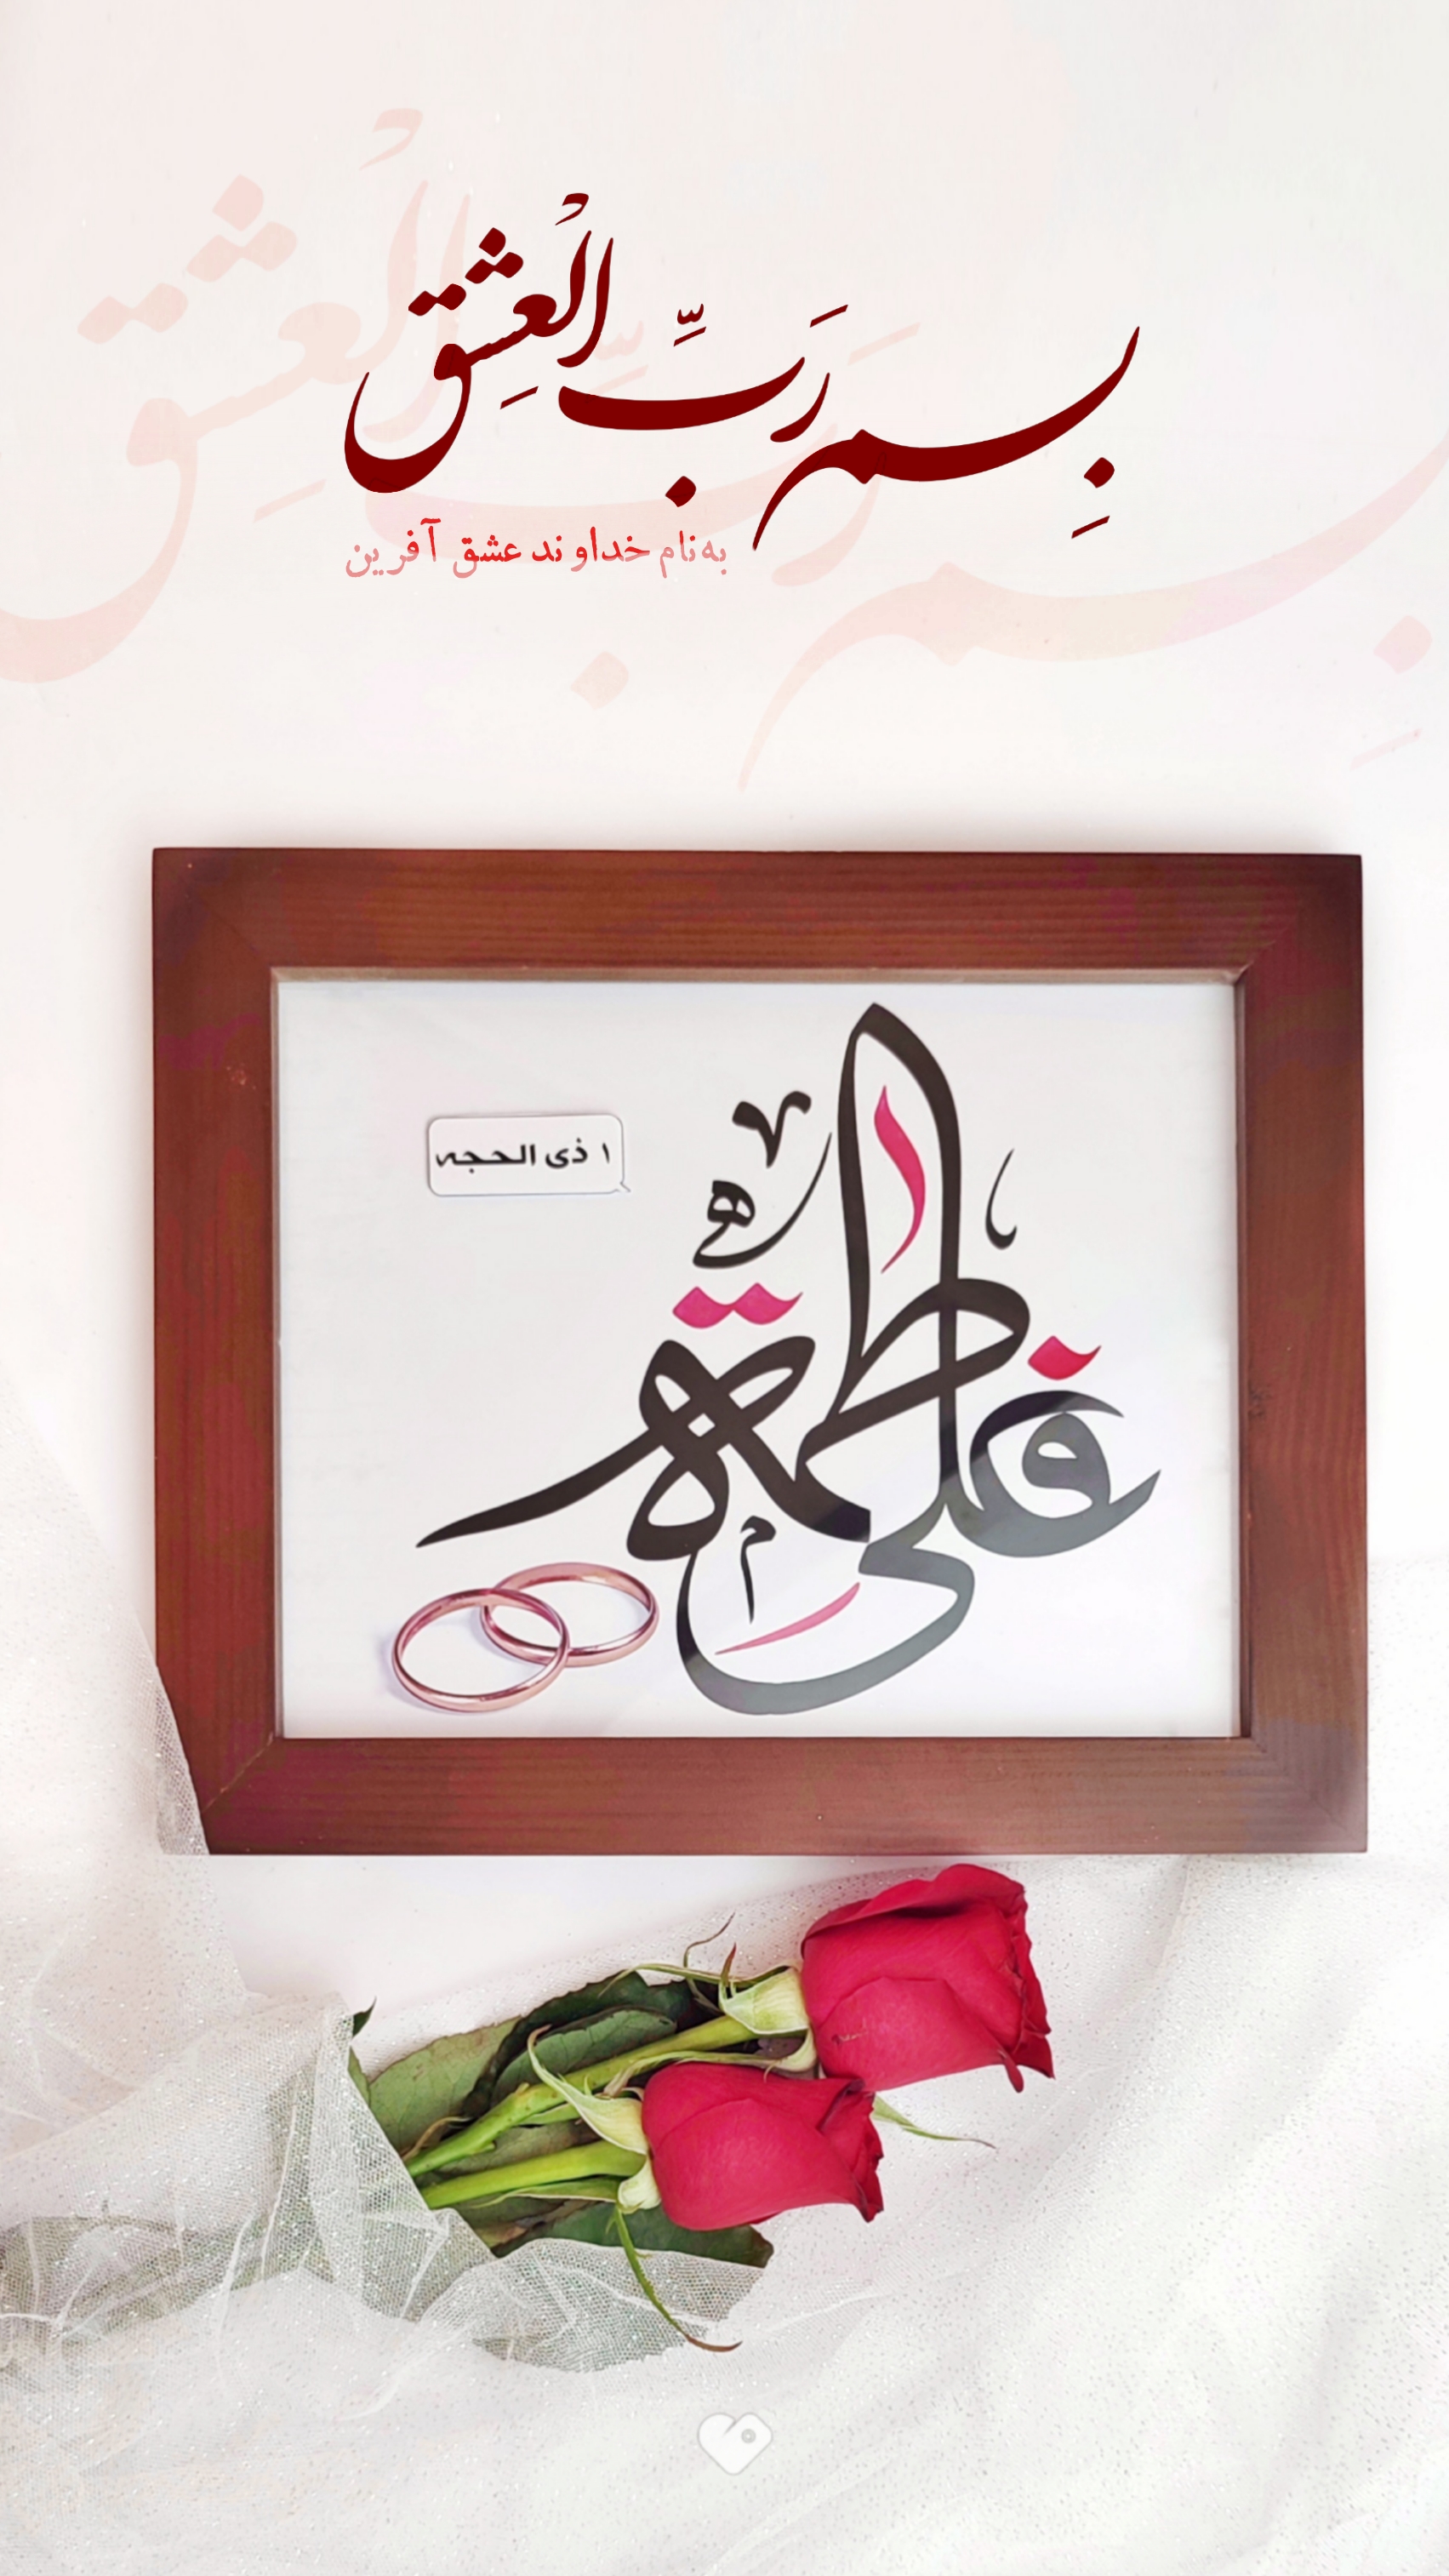 بِسمِ رَبِّ الْعِشق
به‌نام خداوند عشق آفرین
۱ ذی الحجه
فاطمة
علی